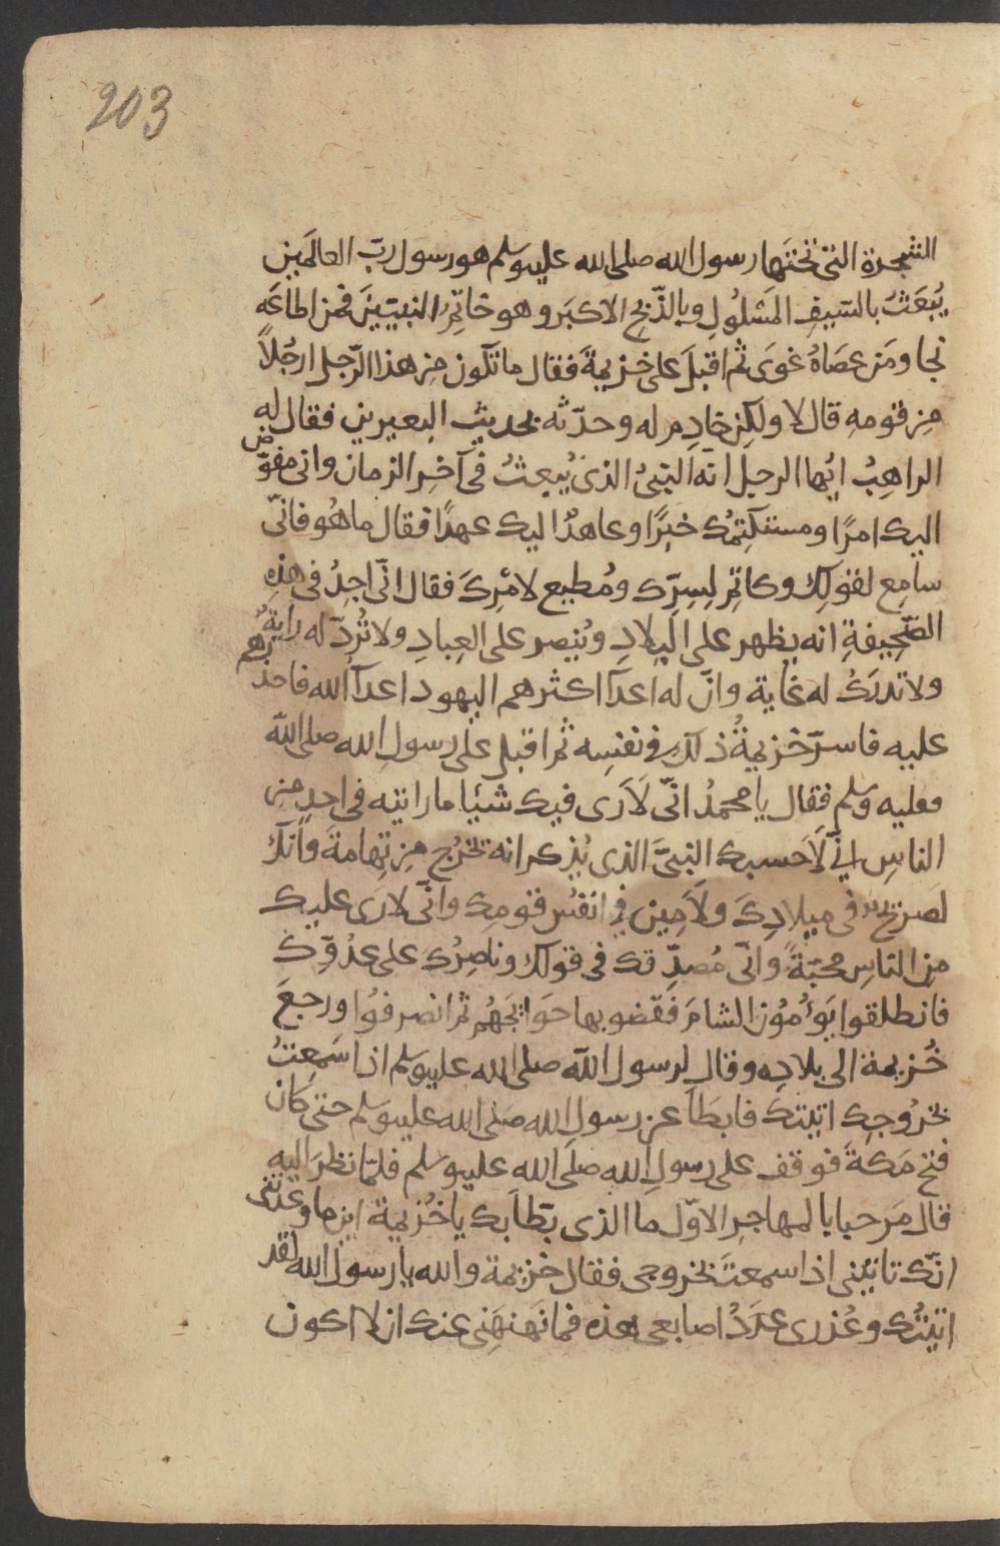 203
الشجرة التى تحتها رسول الله صلى الله عليه وسلم هو رسول ربّ العالمين
يُبعَثُ بالسّيفِ المَسْلُولِ وبالذّبح الاكبَر وهو خاتِمُ النبيّينَ فمن اطاعَه
نجا ومَن عصَاهُ غَوَى ثم اقبلَ على خزيمةَ فقال ما تكون من هذا الرّجل ارجُلاً
مِن قومهِ قال لا ولكن خادِم له وحدّثه بحديثِ البعيرين فقال له
الراهِبُ ايّها الرجل انّه النبىُّ الذى يُبعثُ فى آخِر الزمان وانى مفوّض
اليك امرًا ومستكتِمُك خبرًا وعاهدٌ اليك عهدًا فقال ما هُو فانّى
سامِع لقولِك وكاتِم لِسِرِّك ومُطيع لامْرِكَ فقال انّى اجدُ فى هذهِ
الصّحِيفةِ انه يظهر على البِلادِ ويُنصر على العِبادِ ولا تُردّ له رايةٌ
ولا تدرَكُ له غاية وانّ له اعداً اكثرهم اليهود اعداً الله فاحذرهم
عليه فاسرّ خزيمةُ ذلك فى نفسِه ثم اقبل على رسولِ الله صلى الله
عليه وسلم فقال يا محمدُ انّى لَارى فيك شيئا ما رايته فى احدٍ من
الناسِ انّى لَاَحسبك النبىَّ الذى يُذكر انه يخرُج مِن تِهامةَ وانّك
لصريح فى ميلادِكَ ولَاَمين فى انفُس قومِك وانّى لارَى عليك
من الناسِ محبّةً وانّى مُصدّقك فى قولك وناصِرُك على عدُوِّكَ
فانطلقوا يَؤُمُّون الشامَ فقضو بها حَوَايجَهُم ثم انصرفُوا ورجعَ
خُزيمة الى بلادِه وقال لرسول الله صلى الله عليه وسلم اذا سَمِعتُ
بخرُوجِك اتيتك فابطَاَ عن رسولِ الله صلى الله عليه وسلم حتى كان
فتح مَكةَ فوقف على رسولِ الله صلى الله عليه وسلم فلمّا نظرَ اليهِ
قال مَرحبا بالمهاجِر الاوّل ما الذى بَطّاَبك يا خُزيمة اين ما وعدتنى
انّك تاتينى اذا سمعتَ بخروجى فقال خزيمة والله يا رسول الله لقد
اتيتُك وعُذرى عدَدُ اصابعى هذه فما نَهنهَنى عنك ان لا اكون